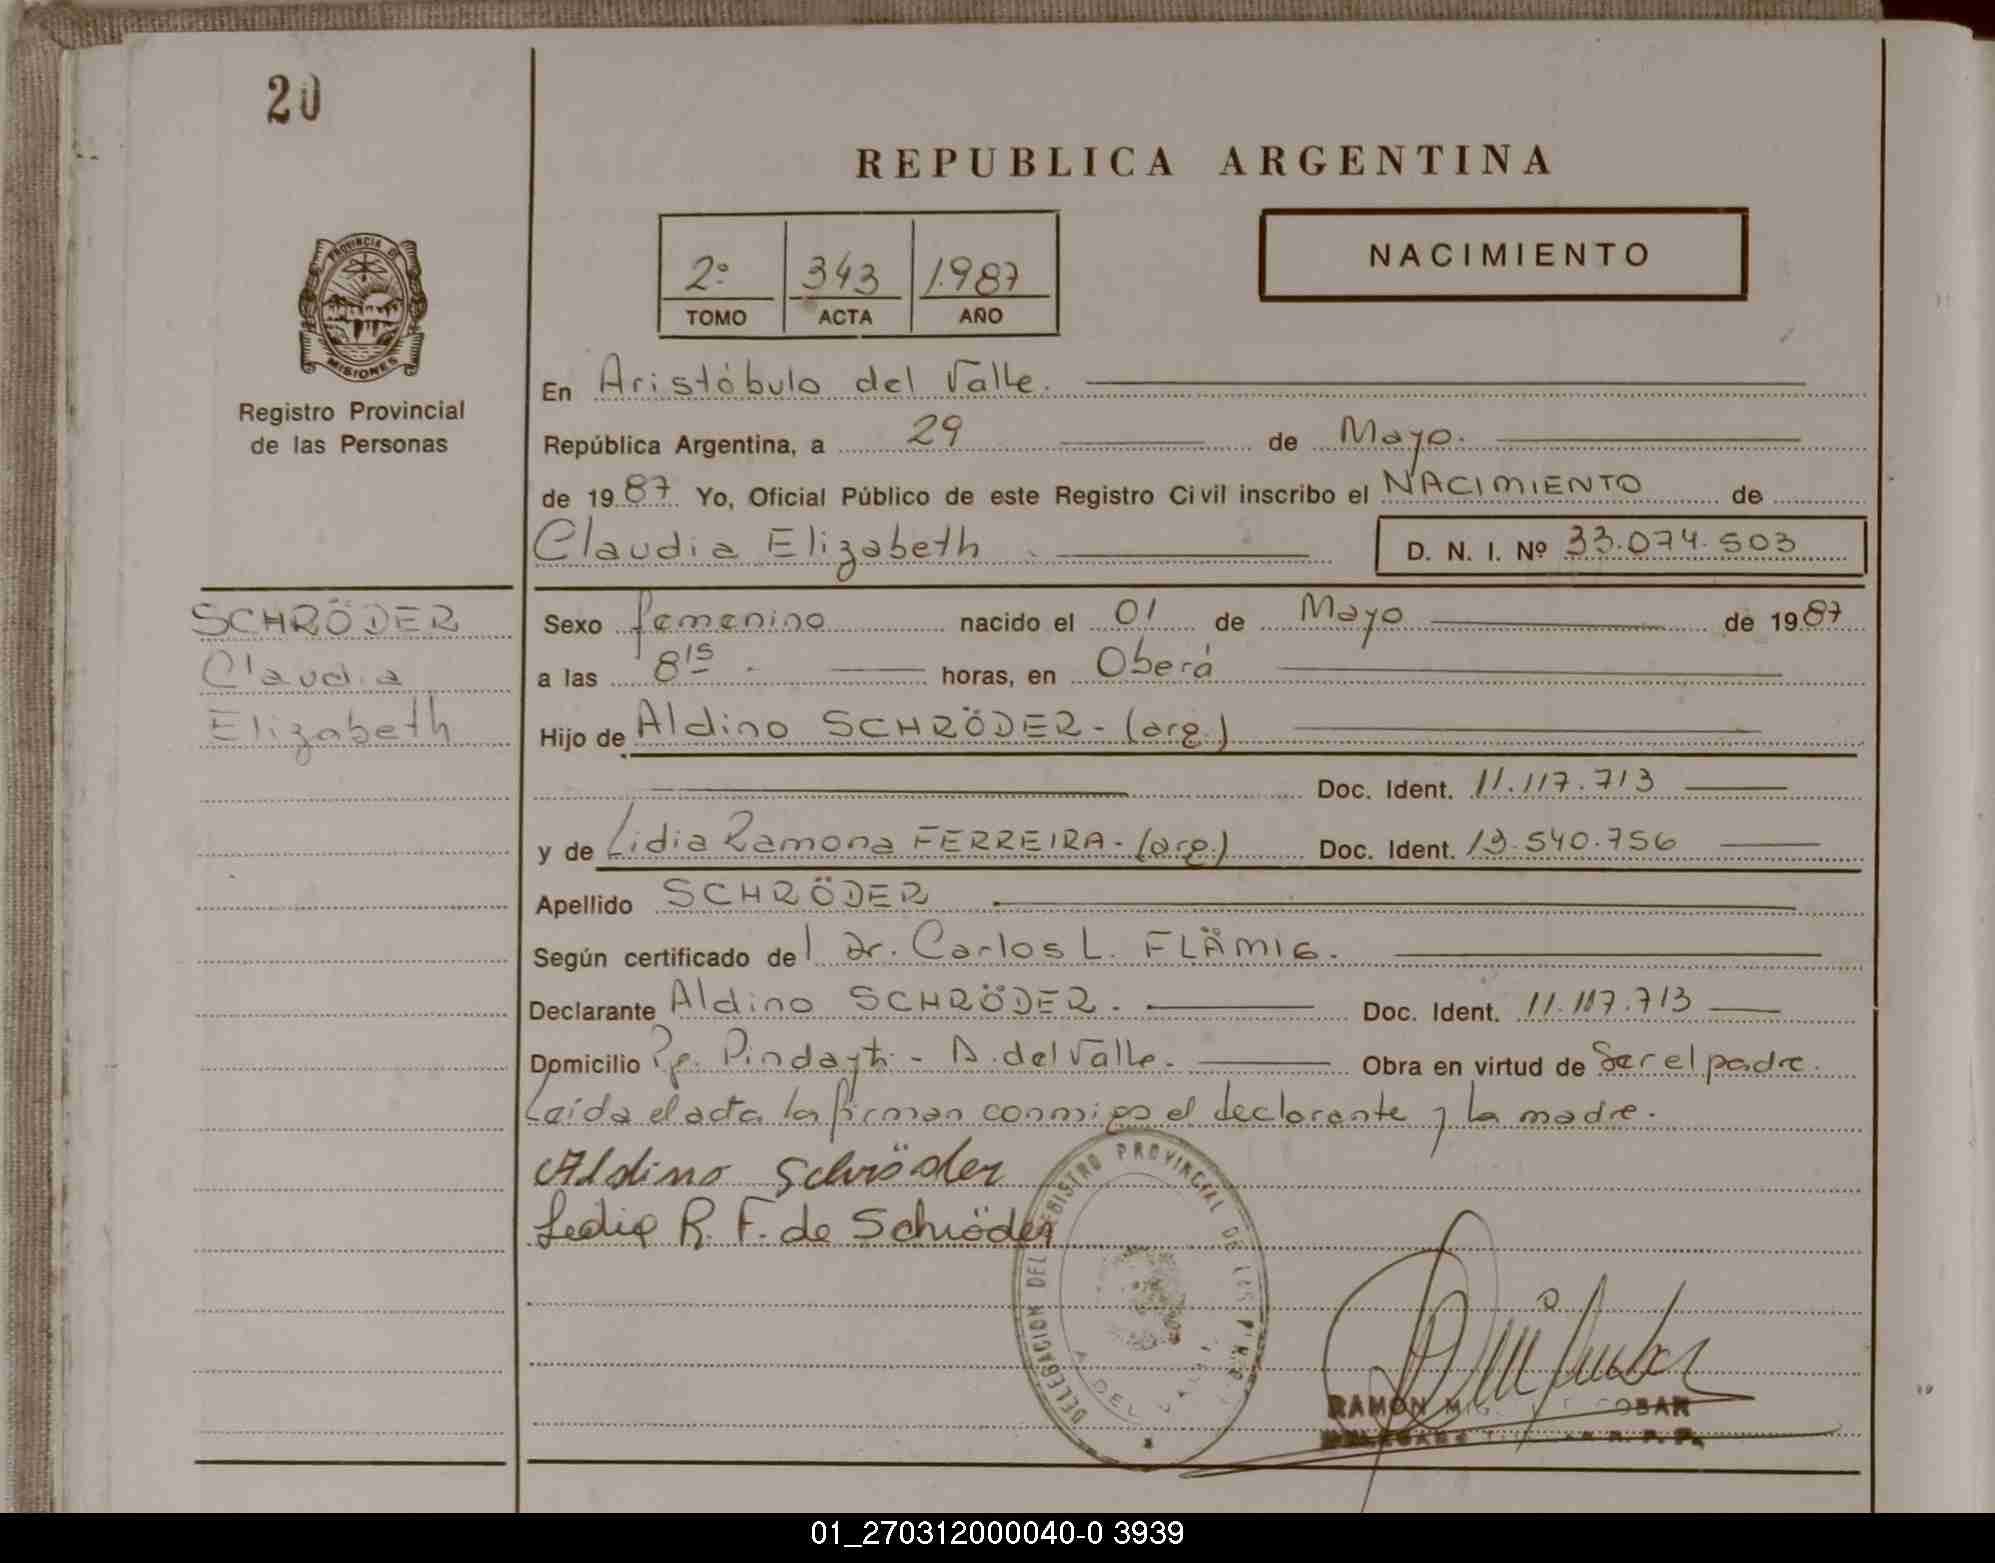 20
REPUBLICA ARGENTINA
2º 343 1.987
TOMO ACTA AÑO
NACIMIENTO
PROVINCIA DE
MISIONES
Registro Provincial
de las Personas
En Aristóbulo del Valle.
República Argentina, a 29 de Mayo.
de 1987 Yo, Oficial Público de este Registro Civil inscribo el NACIMIENTO de
Claudia Elizabeth D. N. I. Nº 33.074.503
SCHRÖDER
Claudia
Elizabeth
Sexo femenino nacido el 01 de Mayo de 1987
a las 8 15 horas, en Oberá
Hijo de Aldino SCHRÖDER - (arg.)
Doc. Ident. 11.117.713
y de Lidia Ramona FERREIRA - (arg.) Doc. Ident. 13.540.756
Apellido SCHRÖDER
Según certificado del Dr. Carlos L. FLÄMIG.
Declarante Aldino SCHRÖDER. Doc. Ident. 11.117.713
Domicilio Pindayti - A. del Valle. Obra en virtud de Ser el padre.
Leída el acta la firman conmigo el declarante y la madre.
Aldino Schröder
Ledia R. F. de Schröder
DELEGACION DEL REGISTRO PROVINCIAL DE LAS
A. DEL VALLE
RAMON
01_270312000040-0 3939